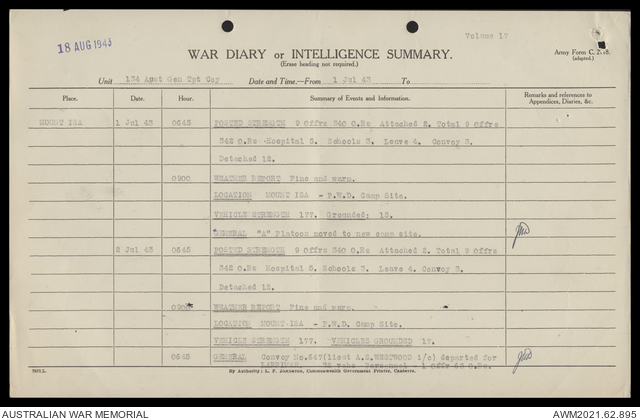 18 AUG 1943
Volume 17
WAR DIARY or INTELLIGENCE SUMMARY.
(Erase heading not required.)
Army Form C.
(adapted.)
Unit 134 Aust Gen Tpt Coy Date and Time.—From 1 Jul 43 To
Place. Date. Hour. Summary of Events and Information. Remarks and references to Appendices, Diaries, &c.
MOUNT ISA 1 Jul 43 0645 POSTED STRENGTH 9 Offrs 340 O.Rs Attached 2. Total 9 Offrs
342 O.Rs Hospital 5. Schools 3. Leave 4. Convoy 3.
Detached 12.
0900 WEATHER REPORT Fine and warm.
LOCATION MOUNT ISA - P.W.D. Camp Site.
VEHICLE STRENGTH 177. Grounded: 15.
GENERAL "A" Platoon moved to new camp site.
2 Jul 43 0645 POSTED STRENGTH 9 Offrs 340 O.Rs Attached 2. Total 9 Offrs
342 O.Rs Hospital 5. Schools 3. Leave 4. Convoy 3.
Detached 12.
0900 WEATHER REPORT Fine and warm.
LOCATION MOUNT ISA - P.W.D. Camp Site.
VEHICLE STRENGTH 177. VEHICLES GROUNDED 17.
0645 GENERAL Convoy No.547(Lieut A.S.WESTWOOD i/c) departed for
LARRIMAH. 32 vehs Personnel - 1 Offr 46 O.Rs.
By Authority: L. F. Johnston, Commonwealth Government Printer, Canberra.
AUSTRALIAN WAR MEMORIAL
AWM2021.62.895